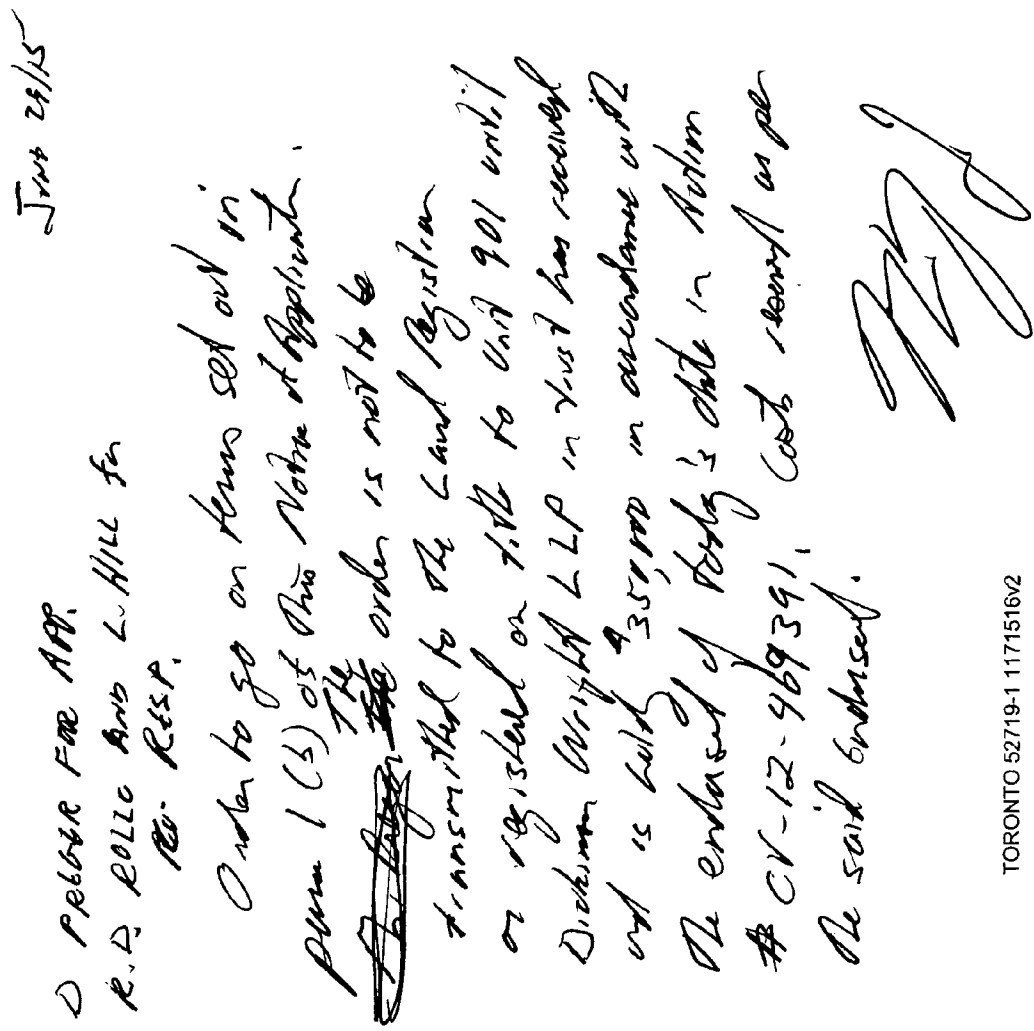 June 29/15
D PREGER FOR APP.
R.D. ROLLO AND L. HILL for
the RESP.
Order to go on terms set out in
para 1 (b) of this Notice of Application.
The order is not to be
transmitted to the Land Registrar
or registered on title to Unit 901 until
Dickinson Wright LLP in trust has received
and is holding $350,000 in accordance with
the endorsement of today's date in Action
# CV-12-469391. Costs reserved as per
the said endorsement.
TORONTO 52719-1 1171516v2